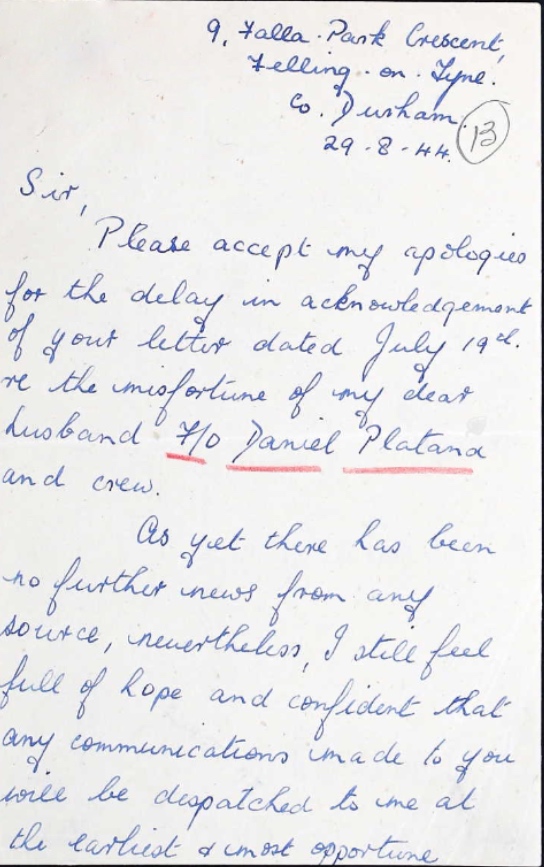 9, Falla Park Crescent,
Felling-on-Tyne.
Co. Durham.
13
29-8-44.
Sir,
Please accept my apologies
for the delay in acknowledgement
of your letter dated July 19th.
re the misfortune of my dear
husband F/O Daniel Platana
and crew.
As yet there has been
no further news from any
source, nevertheless, I still feel
full of hope and confident that
any communications made to you
will be despatched to me at
the earliest & most opportune